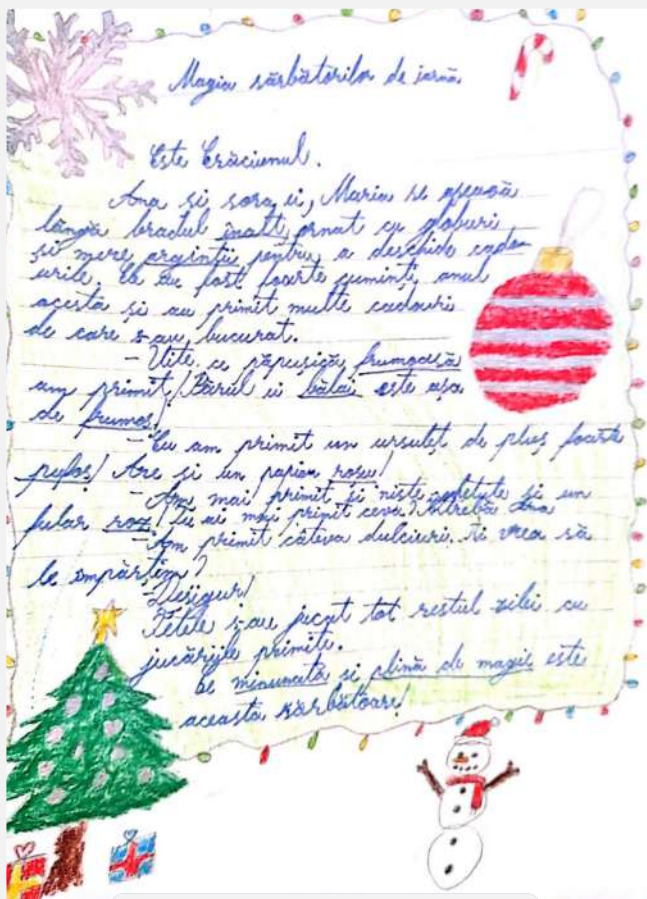 Magia sărbătorilor de iarnă
Este Crăciunul.
Ana și sora ei, Maria se așează
lângă bradul înalt, ornat cu globuri
și mere argintii pentru a deschide cado-
urile. Ele au fost foarte cuminți anul
acesta și au primit multe cadouri
de care s-au bucurat.
- Uite ce păpușică frumoasă
am primit! Părul ei bălai este așa
de frumos!
- Eu am primit un ursuleț de pluș foarte
pufos! Are și un papion roșu!
- Am mai primit și niște și un
fular roz! Tu ai mai primit ceva? întrebă Ana
- Am primit câteva dulciuri. Ai vrea să
le împărțim?
- Desigur!
Fetele s-au jucat tot restul zilei cu
jucăriile primite.
Ce minunată și plină de magie este
această sărbătoare!